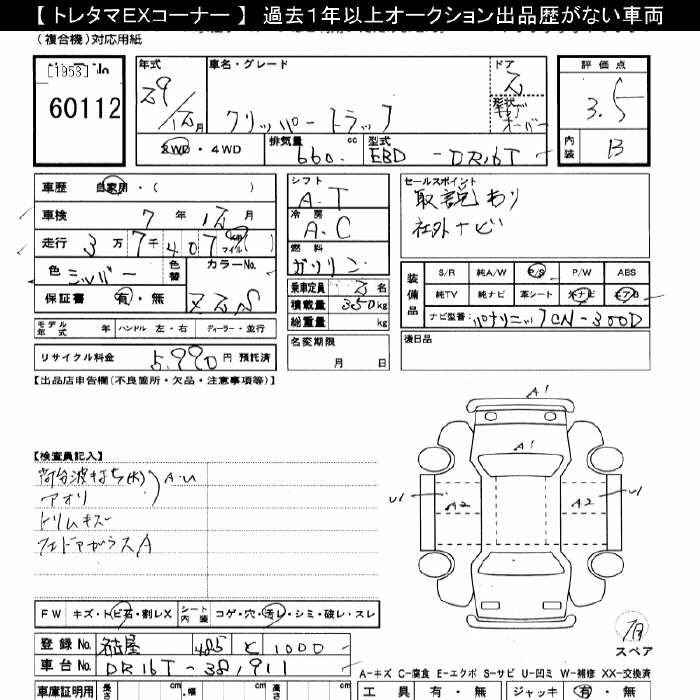 【トレタマEXコーナー】 過去1年以上オークション出品歴がない車両
(複合機)対応用紙
[1953]
60112
年式
29/12月
車名・グレード
クリッパートラック
ドア
2
形状
評価点
3.5
内装
B
2WD・4WD
排気量
660. cc
型式
EBD-DR16T
車歴 自家用・( )
車検 7年12月
走行 3万7千407 km マイル
色 シルバー 色替 カラーNo. Z2S
保証書 有・無
モデル年式 年 ハンドル 左・右 ディーラー・並行
リサイクル料金 5,990円 預託済
シフト
A-T
冷房
A.C
燃料
ガソリン
乗車定員 2名
積載量 350kg
総重量 kg
名変期限
月 日
セールスポイント
取説あり
社外ナビ
装備品
S/R 純A/W P/S P/W ABS
純TV 純ナビ 革シート 外ナビ エアB
ナビ型番: パナソニックCN-300D
後日品
【出品店申告欄(不良箇所・欠品・注意事項等)】
【検査員記入】
アオリ
A・U
トリムキズ
A
A1
A1
U1
A2
A2
U1
スペア
FW キズ・トビ石・割レX シート内装 コゲ・穴・汚レ・シミ・破レ・スレ
登録No. 名古屋 485 と 1000
車台No. DR16T-381911
A-キズ C-腐食 E-エクボ S-サビ U-凹ミ W-補修 XX-交換済
車庫証明用 長さ cm 幅 cm 高さ cm
工具 有・無 ジャッキ 有・無